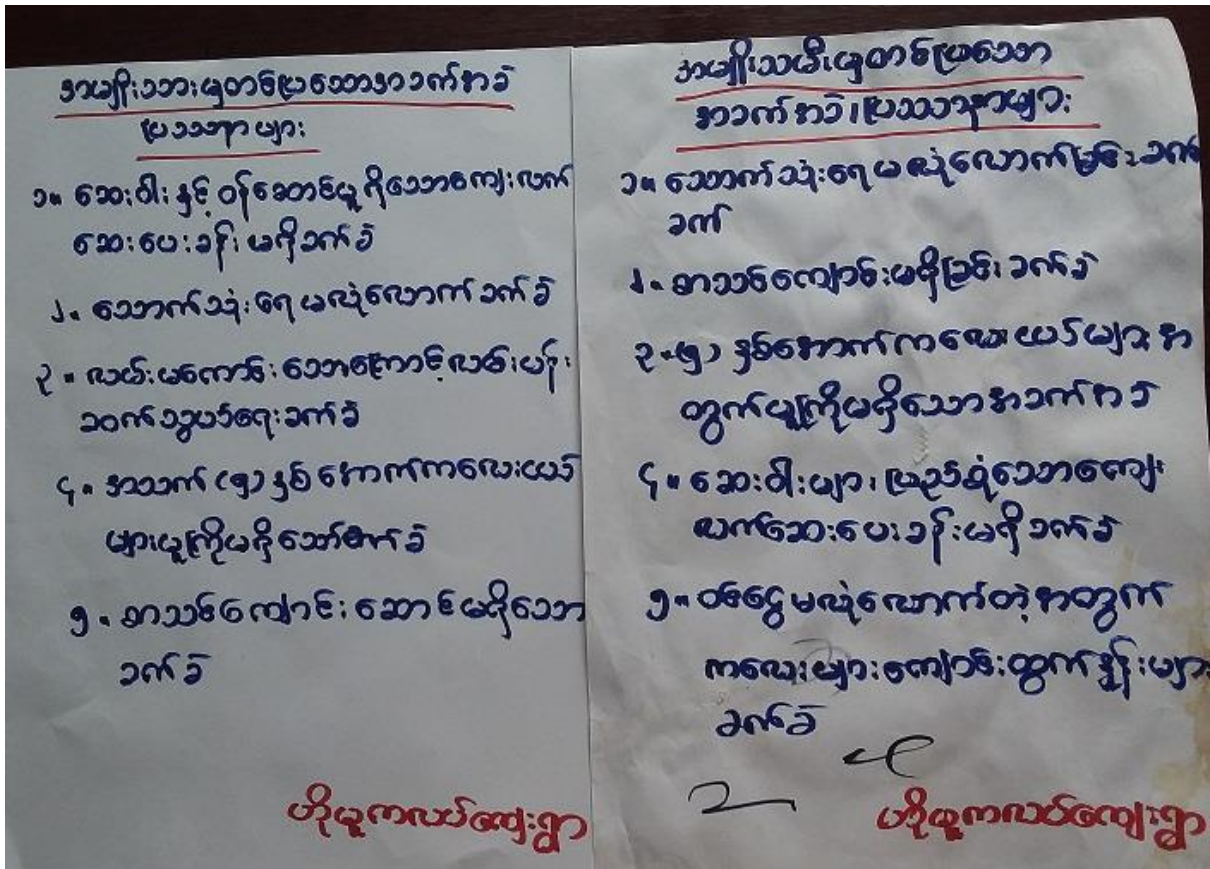 အမျိုးသားမှတင်ပြသောအခက်အခဲ
ပြဿနာများ
၁။ ဆေးဝါးနှင့် ဝန်ဆောင်မှု ရှိသောကျေးလက်
ဆေးပေးခန်း မရှိခက်ခဲ
၂။ သောက်သုံးရေမလုံလောက်ခက်ခဲ
၃။ လမ်းမကောင်းသောကြောင့်လမ်းပန်း
ဆက်သွယ်ရေးခက်ခဲ
၄။ အသက် (၅) နှစ်အောက်ကလေးငယ်
များမူကြိုမရှိသော်ခက်ခဲ
၅။ စာသင်ကျောင်းဆောင်မရှိသော
ခက်ခဲ
ဟိုမူကလပ်ကျေးရွာ
အမျိုးသမီးမှတင်ပြသော
အခက်အခဲ၊ပြဿနာများ
၁။ သောက်သုံးရေမလုံလောက်ခြင်းခက်
ခက်
၂။ စာသင်ကျောင်းမရှိခြင်းခက်ခဲ
၃။ (၅) နှစ်အောက်ကလေးငယ်များအ
တွက်မူကြိုမရှိသောအခက်အခဲ
၄။ ဆေးဝါးများ၊ပြည့်စုံသောကျေး
လက်ဆေးပေးခန်းမရှိခက်ခဲ
၅။ ဝင်ငွေမလုံလောက်တဲ့အတွက်
ကလေးများကျောင်းထွက်နှုန်းများ
ခက်ခဲ
ဟိုမူကလပ်ကျေးရွာ